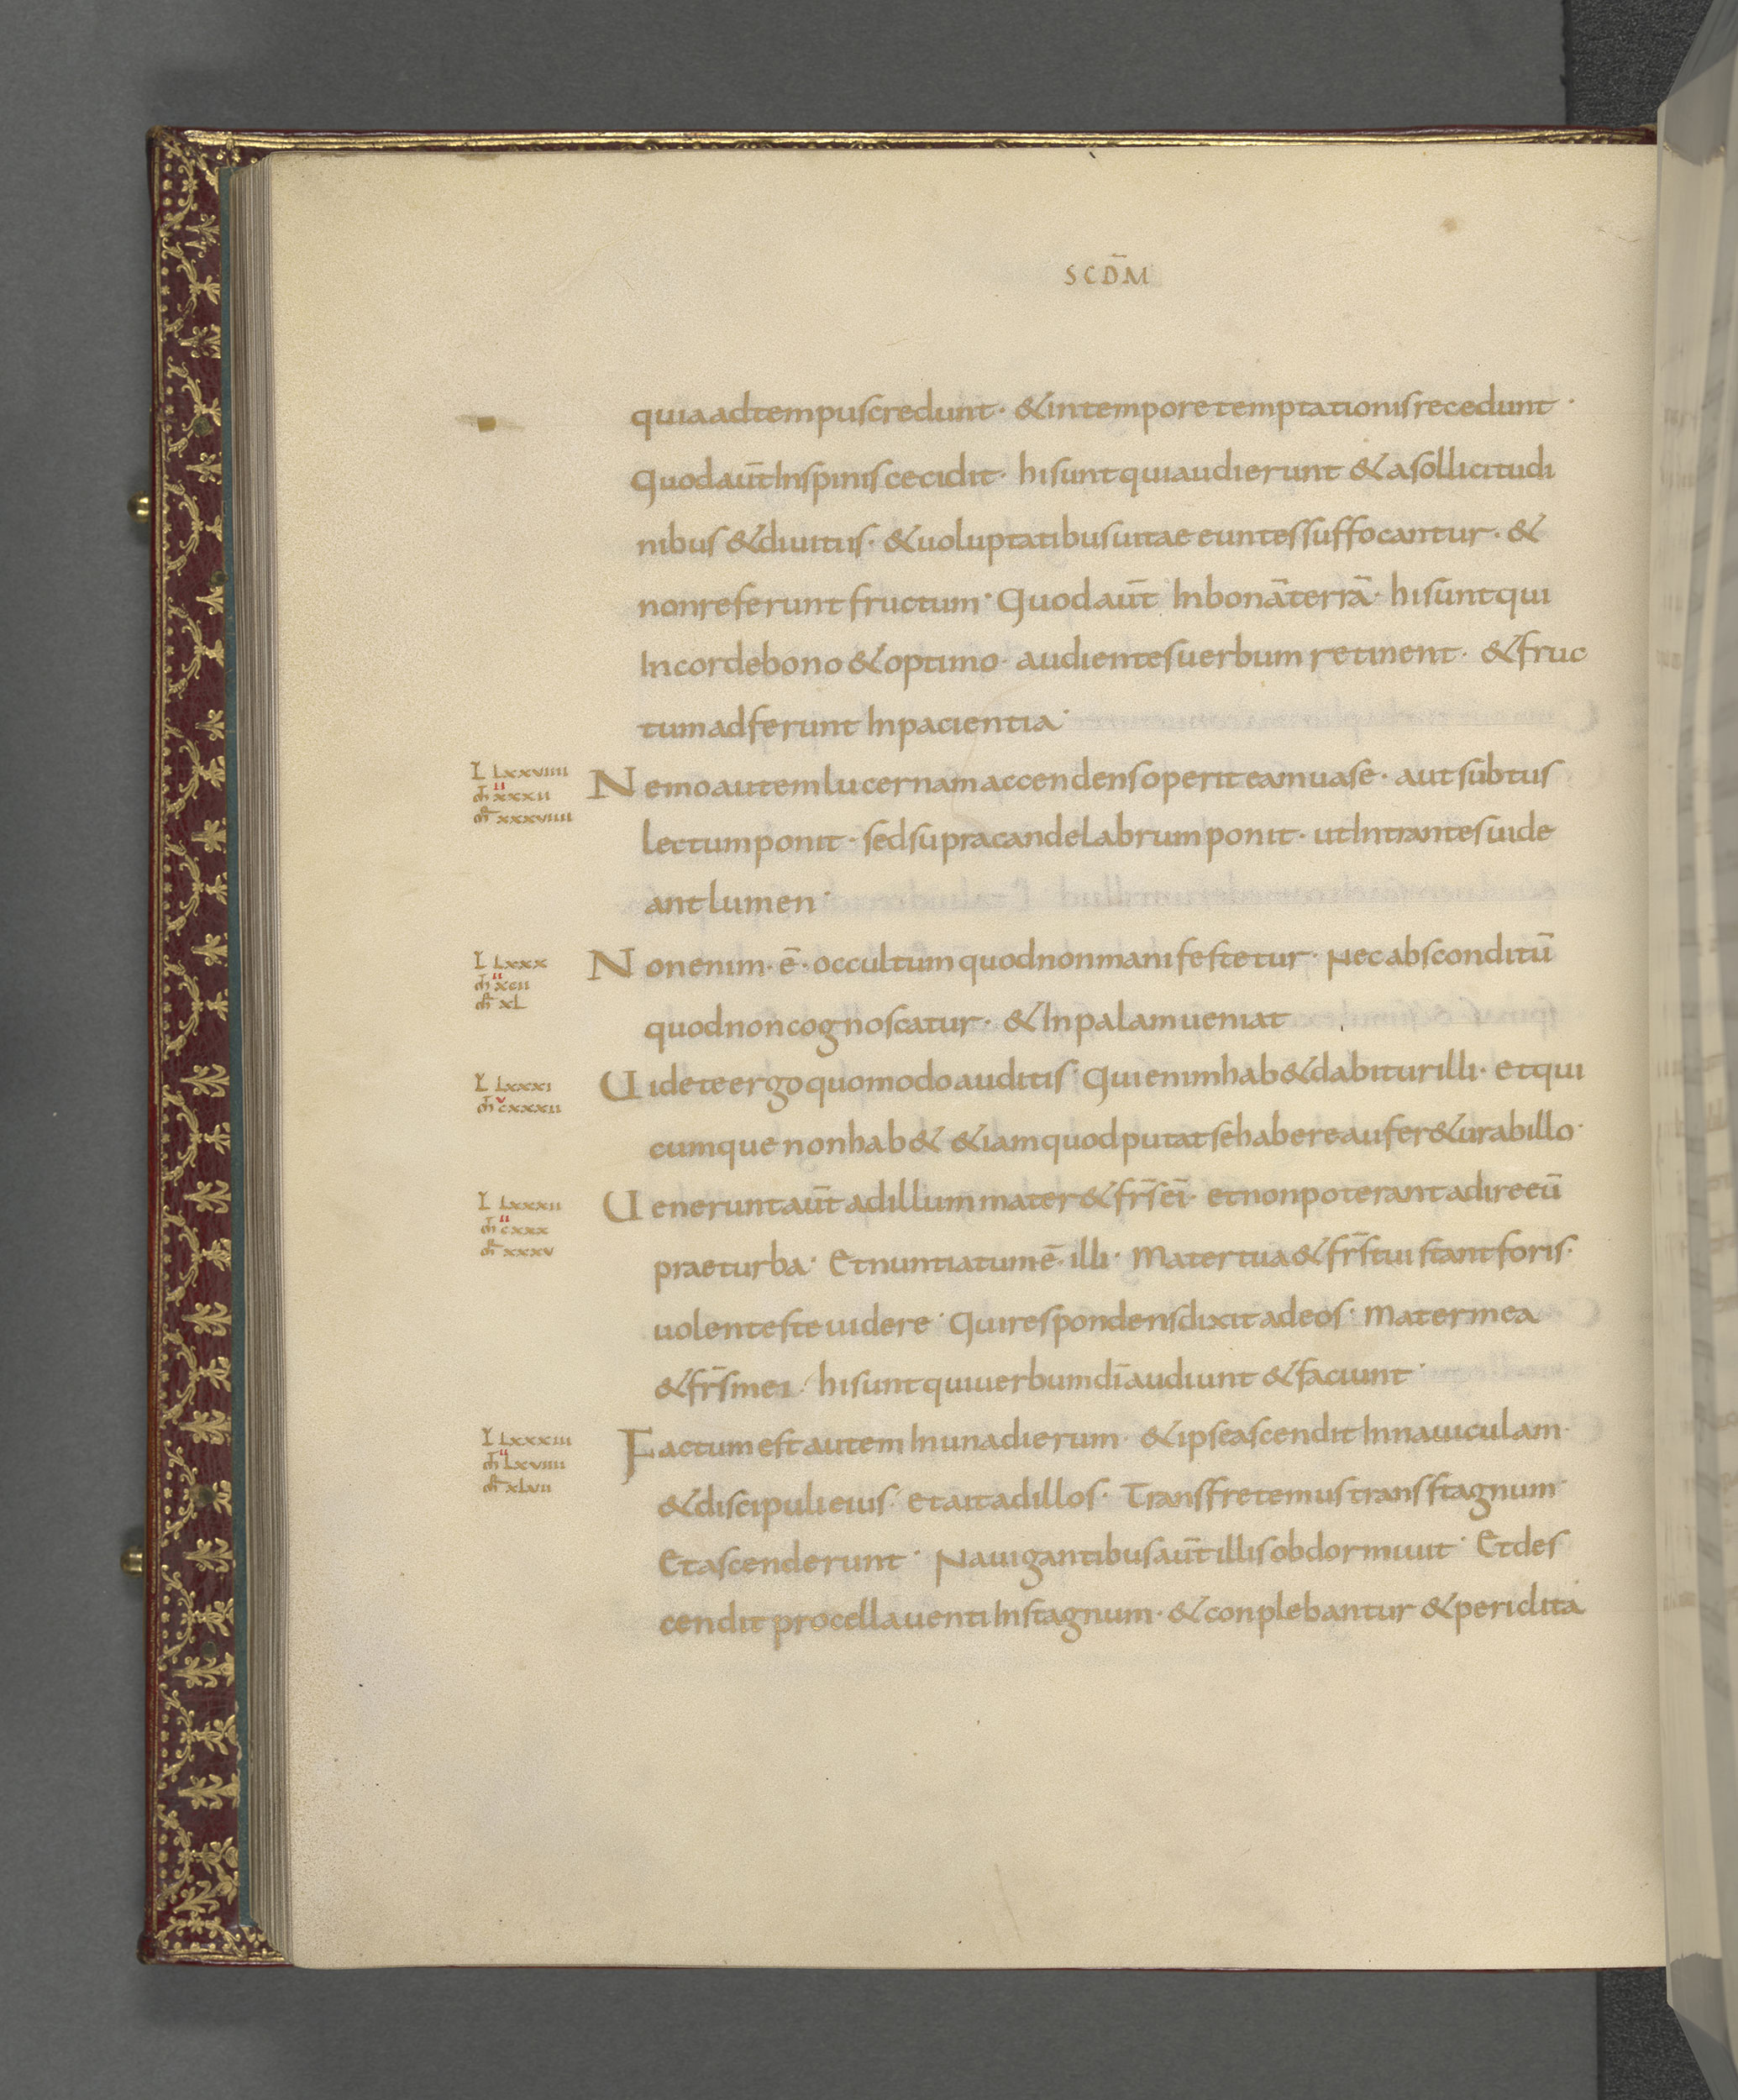 SCD̄M
quiaadtempuscredunt · &intemporetemptationisrecedunt ·
Quodaut̄Inspiniscecidit · hisuntquiaudierunt &asollicitudi
nibus &diuitiis · &uoluptatibusuitae euntessuffocantur · &
nonreferuntfructum · Quodaut̄ Inbonāterrā · hisuntqui
Incordebono &optimo · audientesuerbumretinent · &fruc
tumadferunt Inpacientia ·
L LXXVIIII
mt̄ xxxii
mr̄ xxxviiii
Nemoautemlucernamaccendensoperiteamuase · autsubtus
lectumponit · sedsupracandelabrumponit · utIntrantesuide
antlumen ·
L LXXX
mt̄ xcii
mr̄ xL
Nonenim · ē · occultumquodnonmanifestetur · Necabsconditū
quodnoncognoscatur · &Inpalamueniat
L LXXXI
mt̄ cxxxii
Uideteergoquomodoauditis · Quienimhab&dabiturilli · etqui
cumquenonhab& &iamquodputatsehabereaufer&urabillo ·
L LXXXII
mt̄ cxxx
mr̄ xxxv
Ueneruntaut̄ adillummater&fr̄sei̅ · etnonpoterantadireeū
praeturba · Etnuntiatumē · illi · Matertua&fr̄stuistantforis ·
uolentesteuidere · Quirespondensdixitadeos · Matermea
&fr̄smei · hisuntquiuerbumdīaudiunt &faciunt ·
L LXXXIII
mt̄ Lxviiii
mr̄ xLvii
Factumestautem Inunadierum · &ipseascendit Innauiculam ·
&discipulieius · etaitadillos · Transfretemustransstagnum ·
Etascenderunt · Nauigantibusaut̄illisobdormiuit · Etdes
cenditprocellauentiInstagnum · &conplebantur &periclita